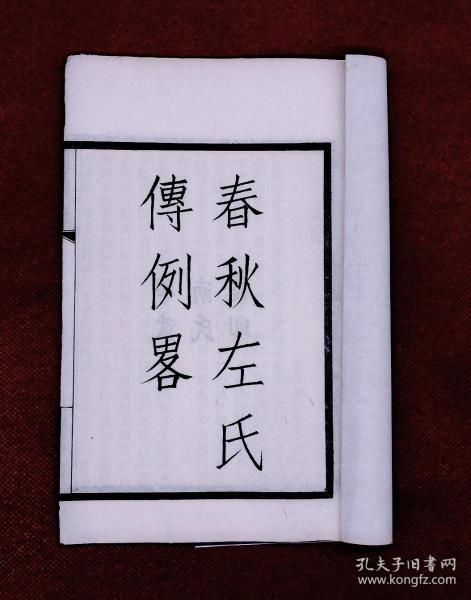 春秋左氏
傳例畧
孔夫子旧书网
www.kongfz.com